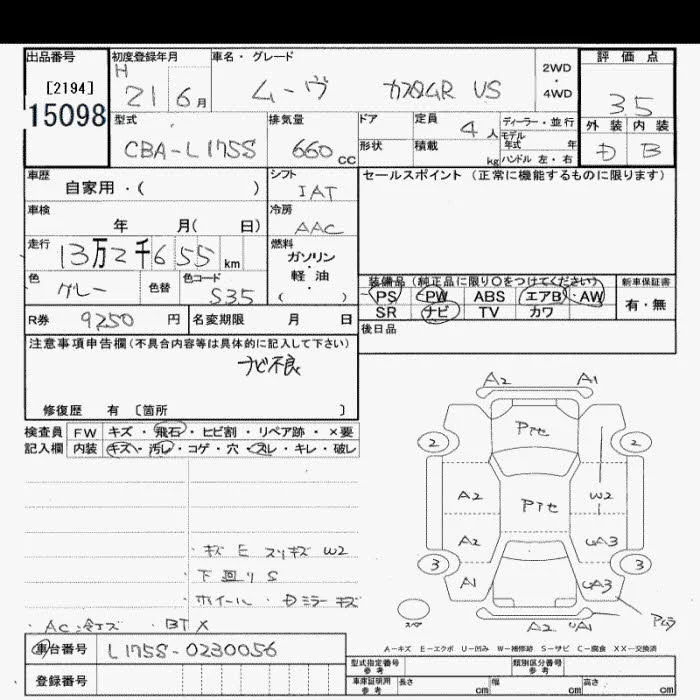 出品番号 初度登録年月 車名・グレード 評価点
[2194] H 21 6月 ムーヴ カスタムR VS 2WD・4WD 35
15098 型式 排気量 ドア 定員 4人 ディーラー・並行 外装 内装
CBA-L175S 660 CC 形状 積載 kg モデル年式 年 ハンドル 左・右 D B
車歴 自家用・( ) シフト IAT セールスポイント (正常に機能するものに限ります)
車検 年 月( 日) 冷房 AAC
走行 13万2千655 km 燃料 ガソリン・軽油・( )
色 グレー 色替 色コード S35
装備品 (純正品に限り○をつけてください) 新車保証書
PS PW ABS エアB AW 有・無
SR ナビ TV カワ
R券 9250 円 名変期限 月 日 後日品
注意事項申告欄(不具合内容等は具体的に記入して下さい)
ナビ不良
修復歴 有 〔箇所 〕
検査員 FW キズ・飛石・ヒビ割・リペア跡・×要
記入欄 内装 キズ・汚レ・コゲ・穴・スレ・キレ・破レ
A2 A1
Pte
2 2
A2 Pte W2
A2 UA3
3 3
A1 UA3
A2 UA1
・キズ E スリキズ W2
・下回り S
・ホイール・Dミラーキズ
・AC冷エズ ・BT X
A-キズ E-エクボ U-凹み W-補修跡 S-サビ C-腐食 XX-交換済
車台番号 L175S-0230056
登録番号
型式指定番号 参考 類別区分番号 参考
車庫証明用 参考 長さ cm 幅 cm 高さ cm